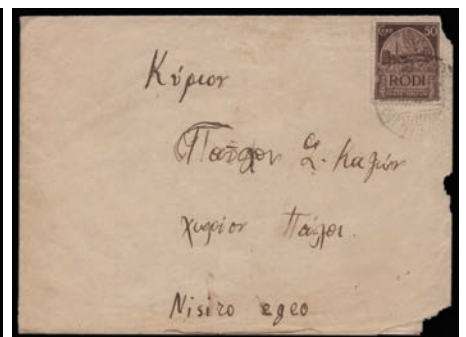 50
RODI
Κύριον
Παῦλον Σ.
χωρίον Πάλοι.
Nisiro egeo